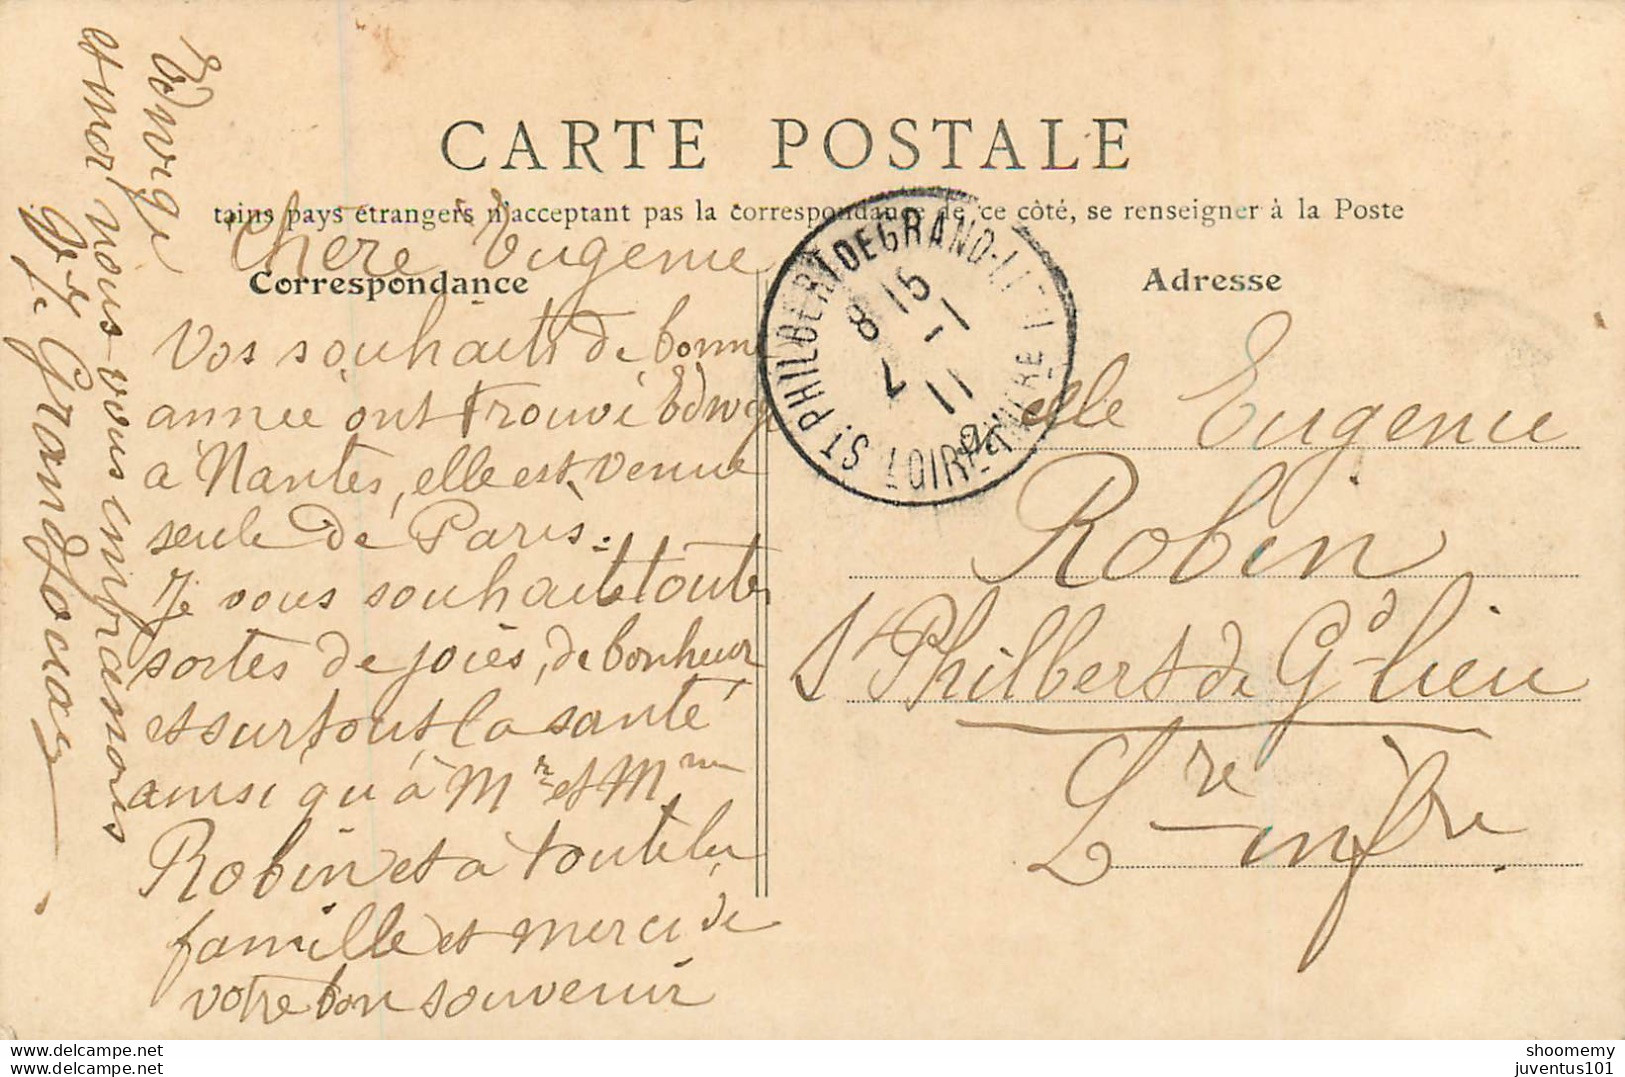 CARTE POSTALE
tains pays étrangers n'acceptant pas la correspondance de ce côté, se renseigner à la Poste
Correspondance
Adresse
Chère Eugenie
Vos souhaits de bonne
année ont trouvé Edwige
à Nantes, elle est venue
seule de Paris.
Je vous souhaite toutes
sortes de joies, de bonheur
et surtout la santé
ainsi qu'à Mr et Mme
Robin et à toute la
famille et merci de
votre bon souvenir
Edwige
et moi nous vous embrassons
Grandjouan
ST PHILBERT DE GRAND-LIEU
LOIRE INFRE
8 15
7 -1
11
Melle Eugenie
Robin
St Philbert de Gd lieu
Lre infre
shoomemy
juventus101